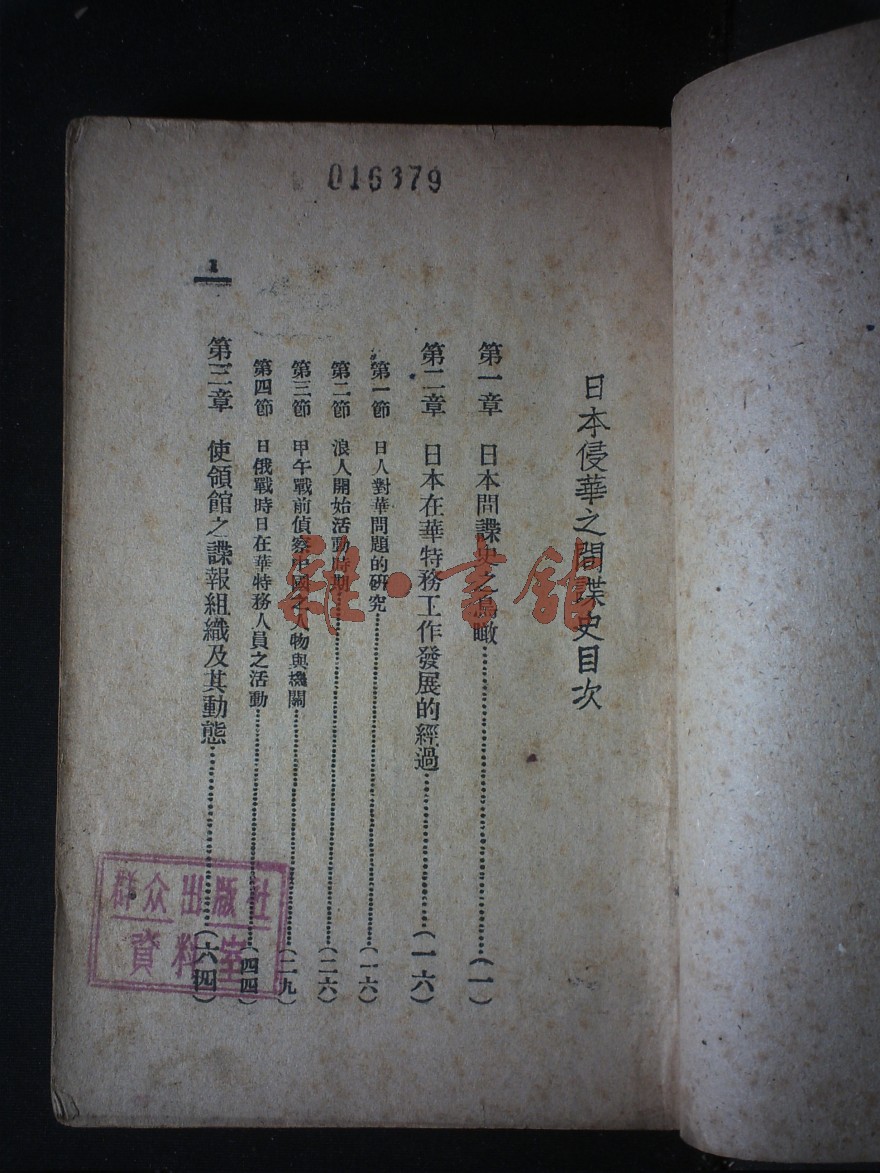 016379
日本侵華之間諜史目次
第一章 日本間諜史之鳥瞰……(一)
第二章 日本在華特務工作發展的經過……(一六)
第一節 日人對華問題的研究……(一六)
第二節 浪人開始活動時期……(二六)
第三節 甲午戰前偵察中國之人物與機關……(二九)
第四節 日俄戰時日在華特務人員之活動……(四四)
第三章 使領館之諜報組織及其動態……(六四)
1
群众出版社
資料室
雜·書館